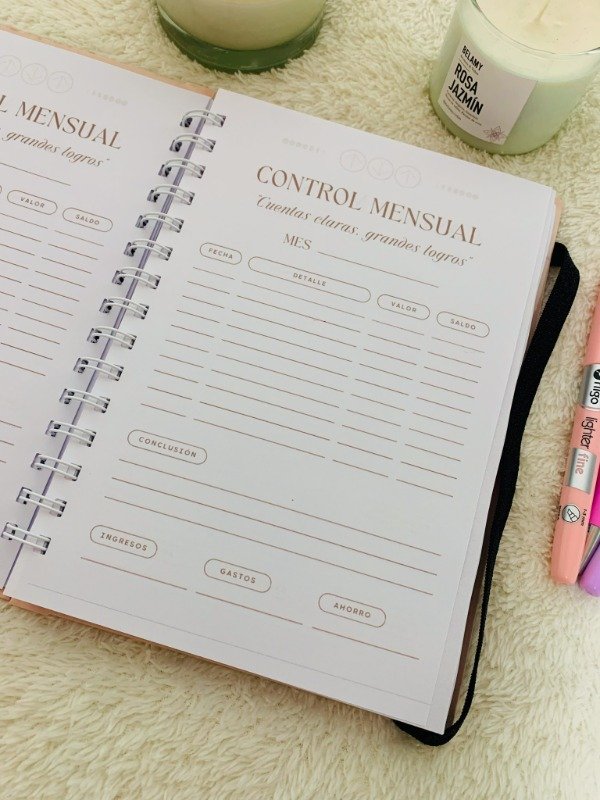 L MENSUAL
grandes logros"
VALOR
SALDO
CONTROL MENSUAL
"Cuentas claras, grandes logros"
MES
FECHA
DETALLE
VALOR
SALDO
CONCLUSIÓN
INGRESOS
GASTOS
AHORRO
BELAMY
ROSA
JAZMÍN
lighter fine